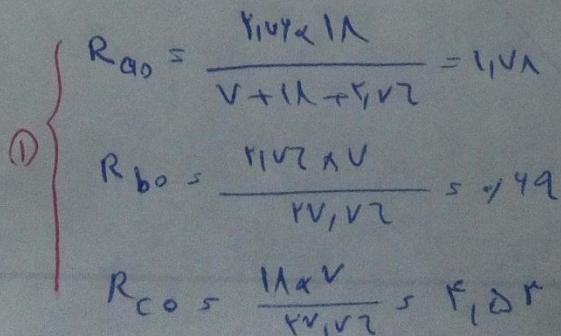 ①
R_ao = ۲,۷۶ × ۱۸ / ۷ + ۱۸ + ۲,۷۶ = ۱,۷۸
R_bo = ۲,۷۶ × ۷ / ۲۷,۷۶ = ۰/۶۹
R_co = ۱۸ × ۷ / ۲۷,۷۶ = ۴,۵۳